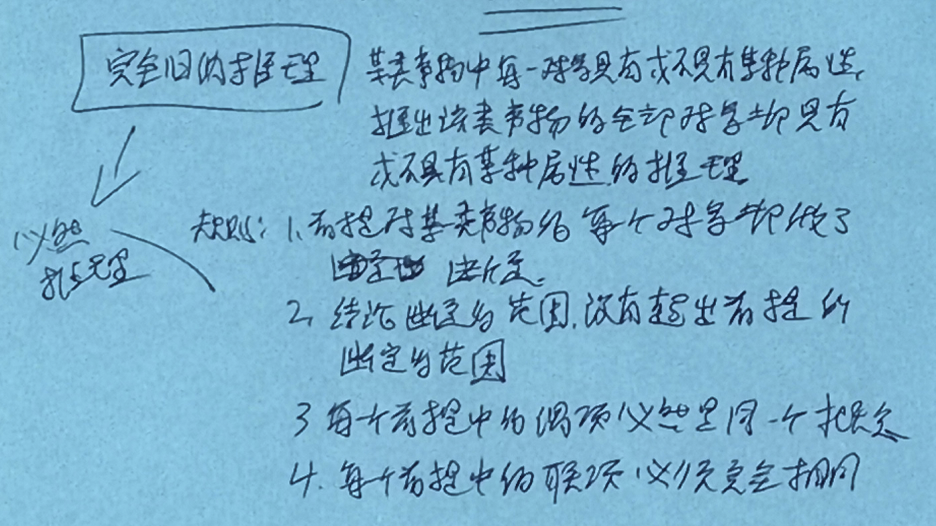 完全归纳推理
某类事物中每一对象具有或不具有某种属性,
推出该类事物的全部对象都具有
或不具有某种属性的推理
必然
推理
规则: 1、前提对某类事物的每个对象都做了
断定.
2、结论断定的范围,没有超出前提的
断定的范围
3 每个前提中的谓项必然是同一个概念
4. 每个前提中的联项必须完全相同